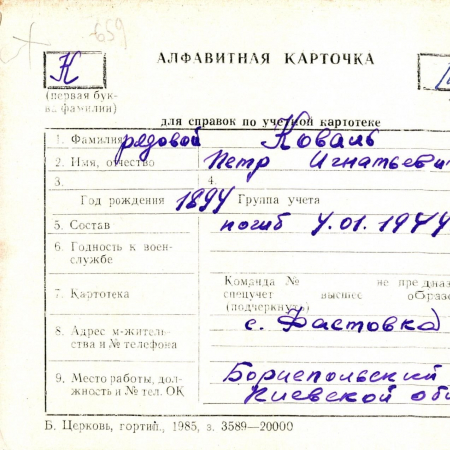 659
К
АЛФАВИТНАЯ КАРТОЧКА
(первая бук-
ва фамилии)
для справок по учетной картотеке
1. Фамилия рядовой Коваль
2. Имя, отчество Петр Игнатьеви
3.
4.
Год рождения 1894 Группа учета
5. Состав погиб 4.01.1944
6. Годность к воен-
службе
7. Картотека
Команда № не предназ
спецучет высшее образо
(подчеркнуть)
8. Адрес м-жительс-
тва и № телефона
с. Фастовка
9. Место работы, дол-
жность и № тел. ОК
Бориспольский
Киевской об
Б. Церковь, гортип., 1985, з. 3589—20000